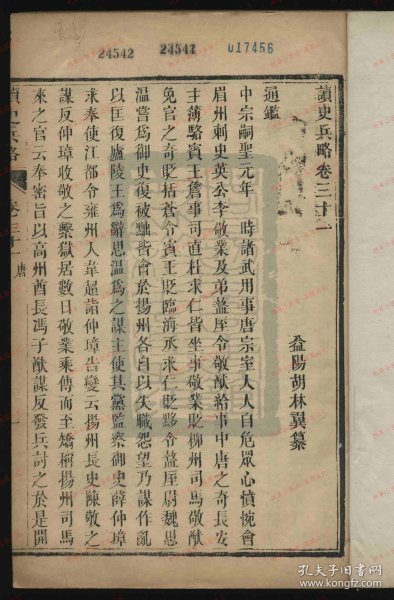 24542
24542
017456
讀史兵略卷三十一
益陽胡林翼纂
通鑑
中宗嗣聖元年 時諸武用事唐宗室人人自危眾心憤惋會
眉州刺史英公李敬業及弟盩厔令敬猷給事中唐之奇長安
主簿駱賓王詹事司直杜求仁皆坐事敬業貶柳州司馬敬猷
免官之奇貶括蒼令賓王貶臨海丞求仁貶黟令盩厔尉魏思
溫嘗爲御史復被黜皆會於揚州各自以失職怨望乃謀作亂
以匡復廬陵王爲辭思溫爲之謀主使其黨監察御史薛仲璋
求奉使江都令雍州人韋超詣仲璋告變云揚州長史陳敬之
謀反仲璋收敬之繫獄居數日敬業乘傳而至矯稱揚州司馬
來之官云奉密旨以高州酋長馮子猷謀反發兵討之於是開
讀史兵略 卷三十一 唐 一
孔夫子旧书网
kongfz.com